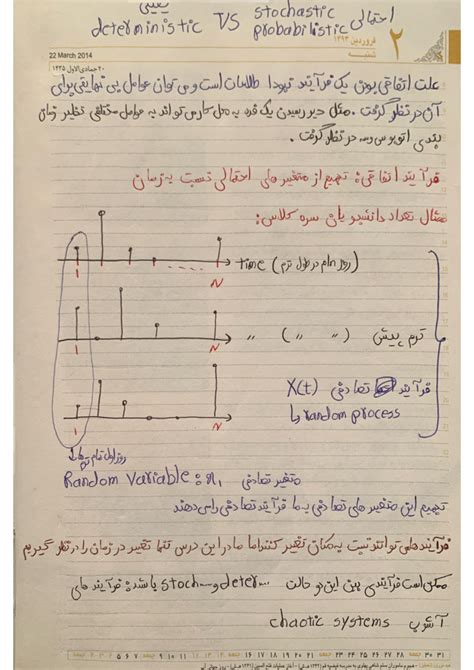 یقینی
احتمالی
deterministic VS stochastic
probabilistic
فروردین ۱۳۹۳
شنبه
۲
22 March 2014
۲۰ جمادی الاول ۱۴۳۵
علت اتفاقی بودن یک فرآیند نبود اطلاعات است و می توان عوامل بی نهایتی برای
آن در نظر گرفت. مثل دیر رسیدن یک فرد به محل کارش تواند به عوامل مختلفی نظیر زمان
بندی اتوبوس و ... در نظر گرفت.
فرآیند اتفاقی: تعمیم از متغیر های احتمالی نسبت به زمان
مثال تعداد دانشجویان سره کلاس:
time (روز ام در طول ترم)
1 N
ترم پیش ( " " ) "
1 N
فرآیند تصادفی X(t)
random process
1 N
روز اول تمام ترم ها
Random Variable : x1 متغیر تصادفی
تعمیم این متغیر های تصادفی به ما فرآیند تصادفی را می دهند
فرآیند های توانند نسبت به مکان تغییر کنند اما ما در این درس تنها تغییر در زمان را در نظر گیریم
ممکن است فرآیندی بین این دو حالت deter... و stoch باشد: فرآیند های
آشوب chaotic systems